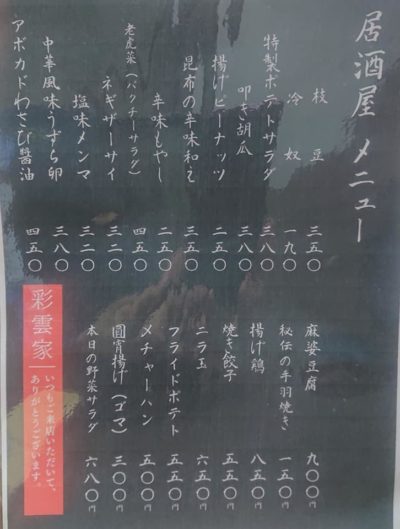 居酒屋 メニュー
枝豆 三五〇
冷奴 一九〇
特製ポテトサラダ 三八〇
叩き胡瓜 三八〇
揚げピーナッツ 二五〇
昆布の辛味和え 三五〇
辛味もやし 二五〇
老虎菜(パクチーサラダ) 四五〇
ネギザーサイ 三二〇
塩味メンマ 三二〇
中華風味うずら卵 三八〇
アボカドわさび醤油 四五〇
麻婆豆腐 九〇〇円
秘伝の手羽焼き 一五〇円
揚げ鵪 八五〇円
焼き餃子 五五〇円
ニラ玉 六五〇円
フライドポテト 五五〇円
メチャーハン 五〇〇円
圓宵揚げ(ゴマ) 三〇〇円
本日の野菜サラダ 六八〇円
彩雲家
いつもご来店いただいて、
ありがとうございます。